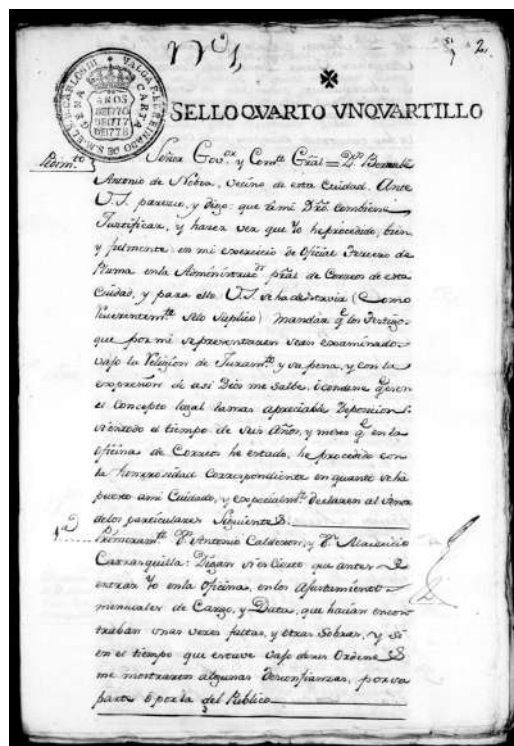 Nº 1, 2.
CARLOS III
VALGA P. EL REINADO DE S.M. EL S.
CARTAGENA
AÑOS
DE 1776
DE 1777
DE 1778
SELLO QVARTO VN QVARTILLO
Pedim.to
Señor Gov.or y Com.te Gräl = D.n Bernabé
Antonio de Noboa, vecino de esta Ciudad. Ante
V.S. parezco, y digo: que a mi Dro. combiene
Justificar, y hacer ver que Yo he procedido, bien
y fielmente en mi exercicio de Oficial Tercero de
Pluma en la Administrac.n präl de Correos de esta
Ciudad, y para ello V.S. se ha de servir (Como
Suplico) mandar q los Testigos
que por mi se presentaren sean examinados
vajo la Religion de Juram.to y su pena, y con la
expresion de asi Dios me salbe, i condene q son
el Concepto legal la mas apreciable Deposicion
si en todo el tiempo de seis Años, y meses q en la
Oficina de Correos he estado, he procedido con
la honrrosidad Correspondiente en quanto se ha
puesto a mi Cuidado, y especialm.te declaren al tenor
de los particulares Siguientes.
1.a Primeram.te D.n Antonio Calderon, y D.n Mauricio
Carranquilla: Digan si es Cierto que antes de
entrar Yo en la Oficina, en los Ajustamientos
mensuales de Cargo, y Data, que hacian encon
traban unas veces faltas, y otras Sobras, y si
en el tiempo que estuve vajo de sus Ordenes
me mostraron algunas Desconfianzas, por su
parte ó por la del Publico